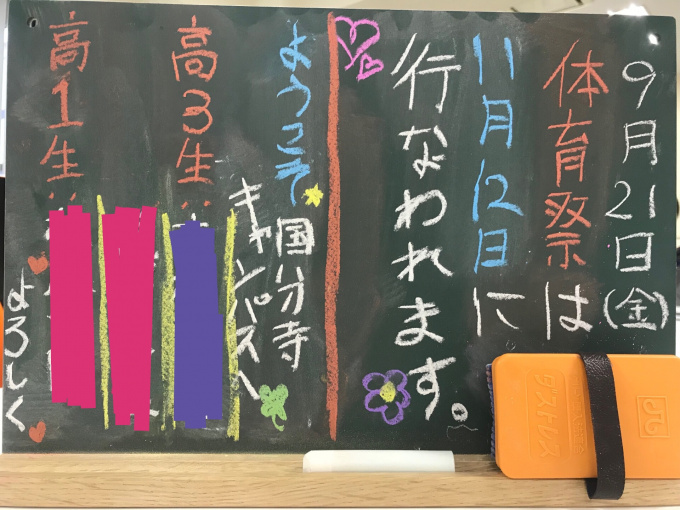 9月21日(金)
体育祭は
11月12日に
行なわれます。
ようこそ
国分寺
キャンパスへ
高3生
高1生
よろしく
ダストレス